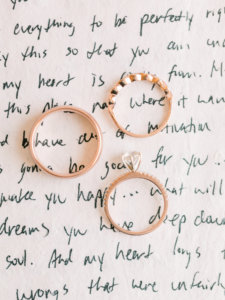 everything to be perfectly rig
y this so that you can
my heart is full. M
this place where it wan
have d of motivation
gonna be for you ...
make you happy ... what will
dreams you have deep down
soul. And my heart longs t
wrongs that were unfairly